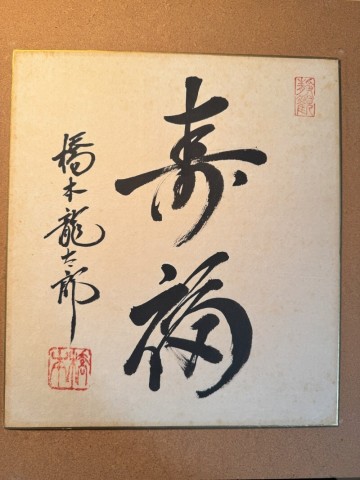 寿福
橋本龍太郎